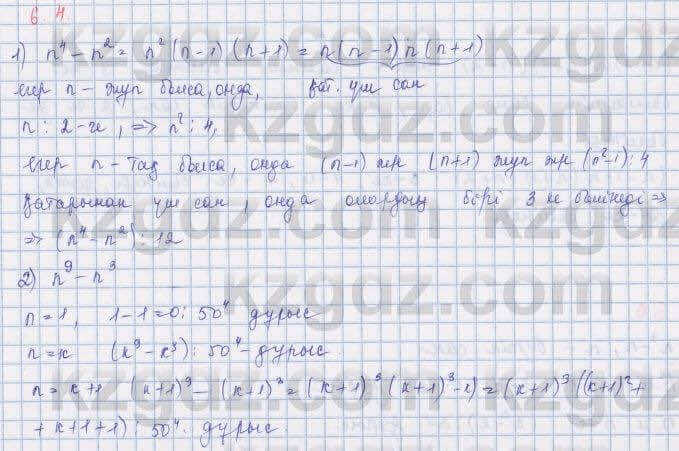 6.4
1) n⁴ - n² = n²(n-1)(n+1) = n(n-1)n(n+1)
егер n - жұп болса, онда, қат. үш сан
n : 2-ге, => n² : 4,
егер n - тақ болса, онда (n-1) жұ. (n+1) жұп жұ (n²-1) : 4
қатарынан үш сан, онда олардың бірі 3 ке бөлінеді =>
=> (n⁴ - n²) : 12
2) n⁹ - n³
n = 1, 1 - 1 = 0 : 504 дұрыс
n = к (к⁹ - к³) : 504 - дұрыс
n = к+1 (к+1)⁹ - (к+1)³ = (к+1)³ (к+1)³ - 1) = (к+1)³ ((к+1)² +
+ к+1+1) : 504. дұрыс.
kzgdz.com